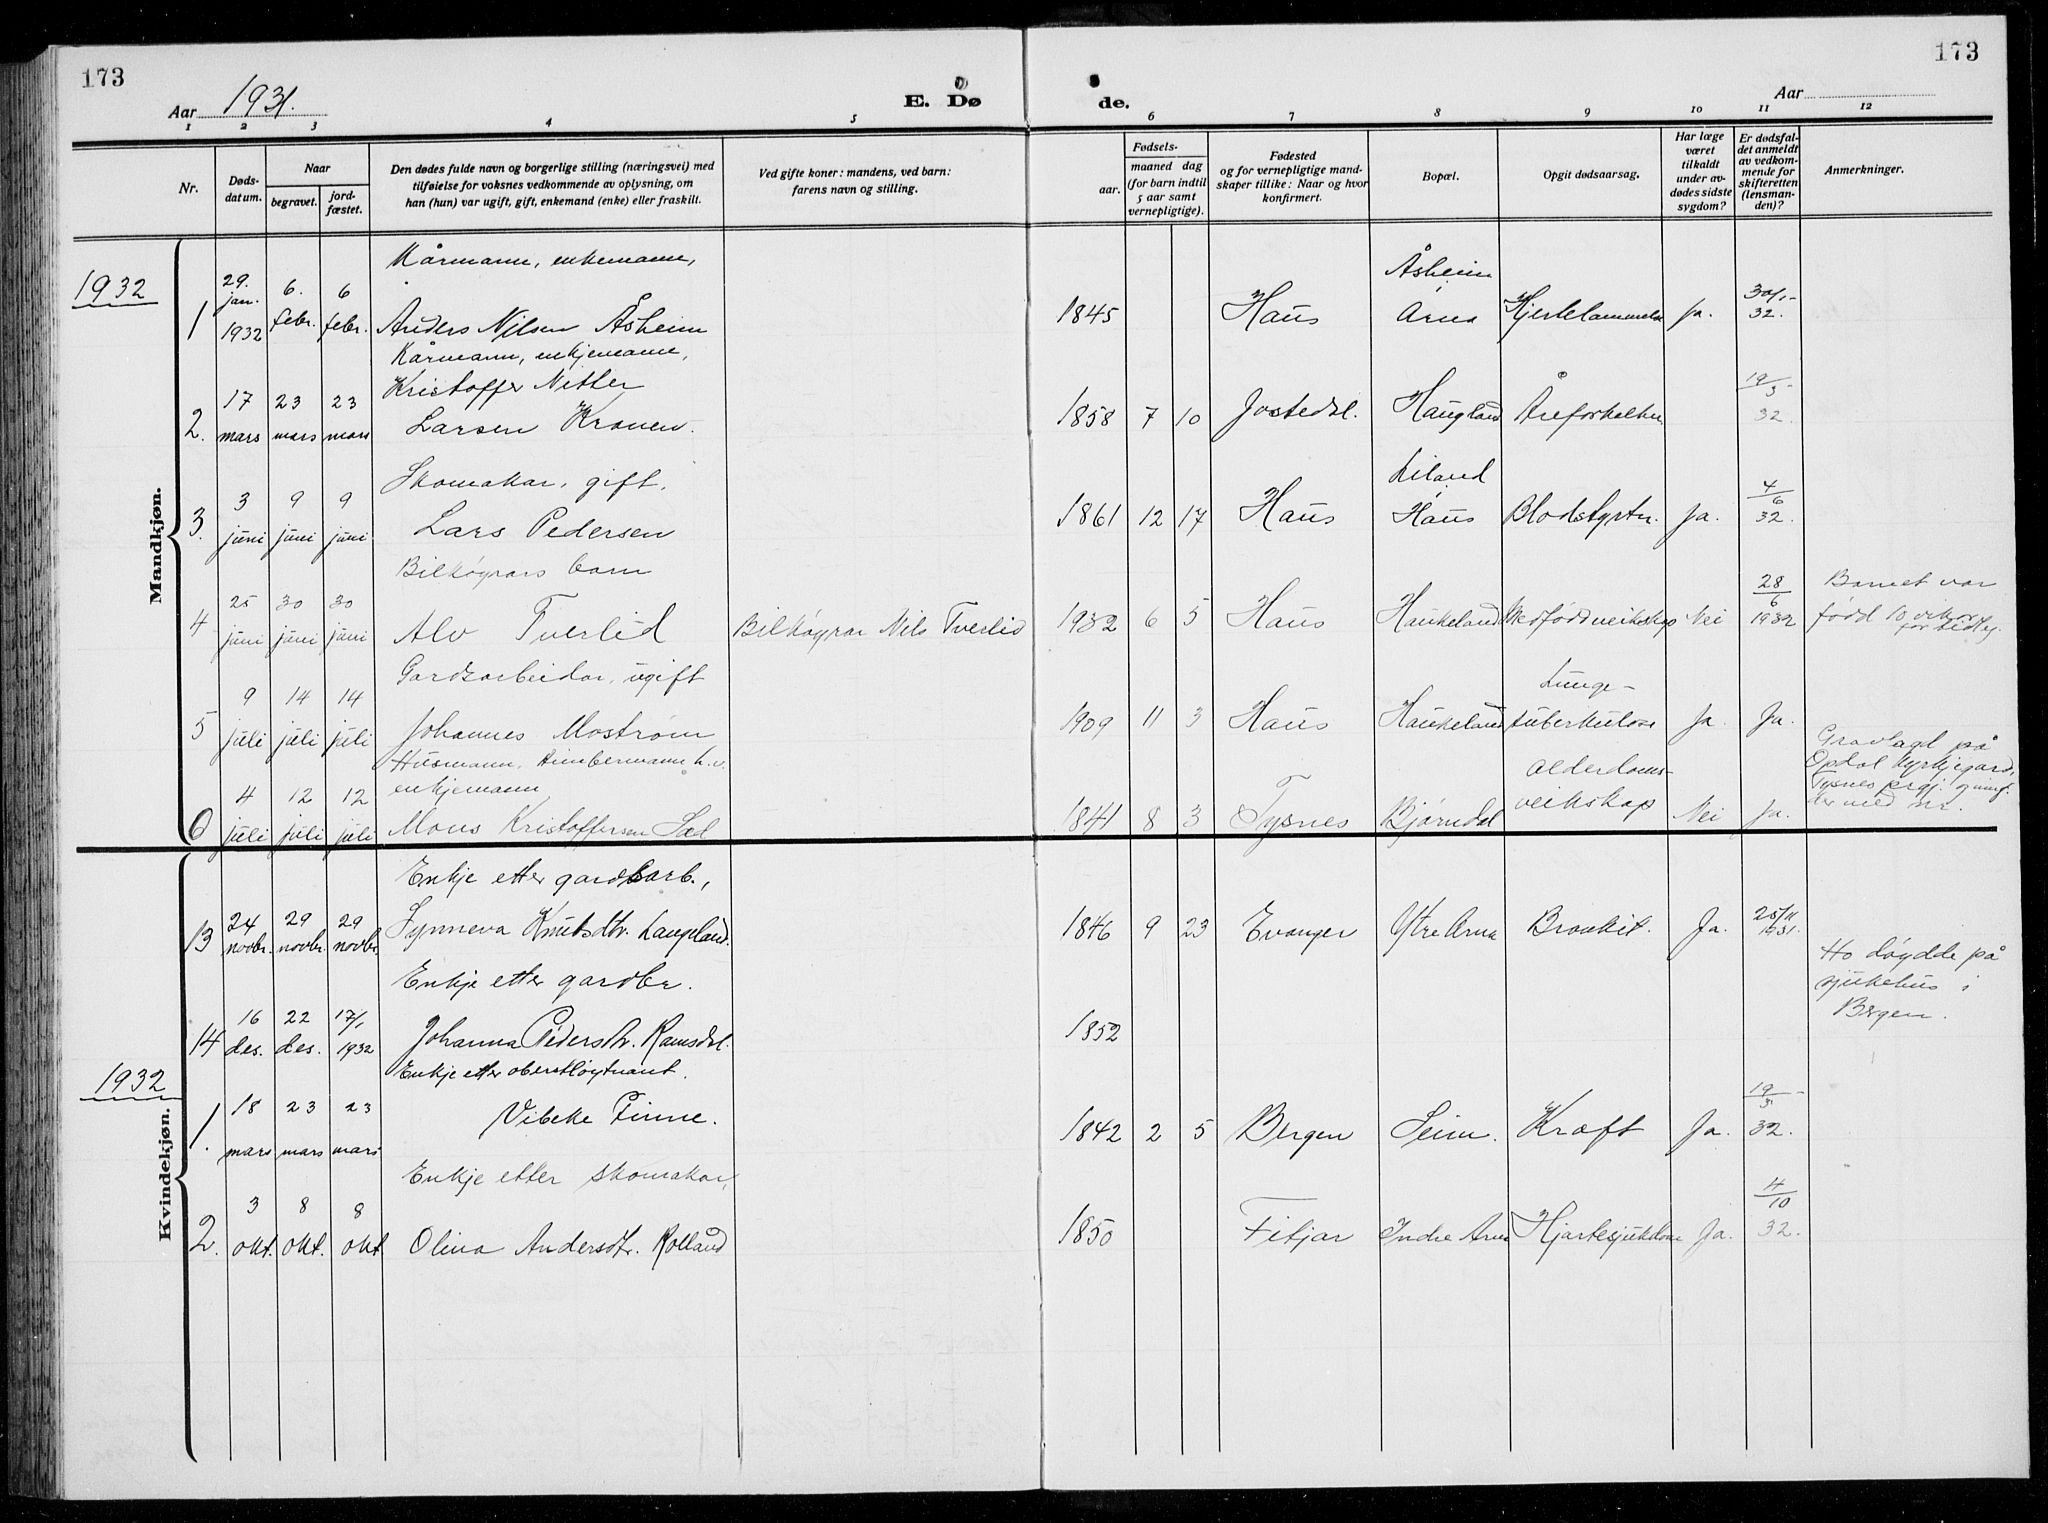 173
173
Aar 1931.
E. Døde.
Aar
1 2 3 4 5 6 7 8 9 10 11 12
Nr.
Døds-
datum.
Naar
begravet.
jord-
fæstet.
Den dødes fulde navn og borgerlige stilling (næringsvei) med
tilføielse for voksnes vedkommende av oplysning, om
han (hun) var ugift, gift, enkemand (enke) eller fraskilt.
Ved gifte koner: mandens, ved barn:
farens navn og stilling.
Fødsels-
aar.
maaned dag
(for barn indtil
5 aar samt
vernepligtige).
Fødested
og for vernepligtige mand-
skaper tillike: Naar og hvor
konfirmert.
Bopæl.
Opgit dødsaarsag.
Har læge
været
tilkaldt
under av-
dødes sidste
sygdom?
Er dødsfal-
det anmeldt
av vedkom-
mende for
skifteretten
(lensman-
den)?
Anmerkninger.
Mandkjøn.
1932
Kårmann, enkemann, Åsheim
1 29. jan. 1932 6. febr. 6 febr. Anders Nilsen Åsheim 1845 Haus Arna Hjertelammelse Ja. 30/1- 32.
Kårmann, enkjemann,
Kristoffer Nitter
2. 17 mars 23 mars 23 mars Larsen Kronen. 1858 7 10 Jostedal. Haugland Åreforkalkn 19/3- 32.
Skomakar, gift. Liland
3. 3 juni 9 juni 9 juni Lars Pedersen 1861 12 17 Haus Haus Blodstyrtn. Ja. 4/6 32.
Bilkøyrars barn
4 25 juni 30 juni 30 juni Alv Tverlid Bilkøyrar Nils Tverlid 1932 6 5 Haus Haukeland Medfødd veikskap Nei 28/6 1932 Barnet var
født 10 vikor
for tidleg.
Gardsarbeidar, ugift Lunge-
5 9 juli 14 juli 14 juli Johannes Mostrøm 1909 11 3 Haus Haukeland tuberkulose Ja. Ja.
Husmann, timbermann
enkjemann Alderdoms-
6 4 juli 12 juli 12 juli Mons Kristoffersen Sæl 1841 8 3 Tysnes Bjørndal veikskap Nei Ja. Gravlagd på
Opdal kyrkjegard,
Tysnes prgj.
Kvindekjøn.
Enkje etter gardbarb.,
13 24 novbr. 29 novbr. 29 novbr. Synneva Knutsdtr. Langeland. 1846 9 23 Evanger Ytre Arna Bronkit. Ja. 25/11 1931.
Enkje etter gardbr.
14 16 des. 22 des. 17/1 1932 Johanna Pedersdtr. Ramsdal. 1852 Ho døydde på
sjukehus i
Bergen.
1932
Enkje etter oberstløytnant.
1. 18 mars 23 mars 23 mars Vibeke Finne. 1842 2 5 Bergen Seim. Kræft Ja. 19/3- 32.
Enkje etter skomakar,
2. 3 okt. 8 okt. 8 okt Olina Andersdtr. Rolland 1850 Fitjar Indre Arna Hjartesjukdom Ja. 4/10 32.